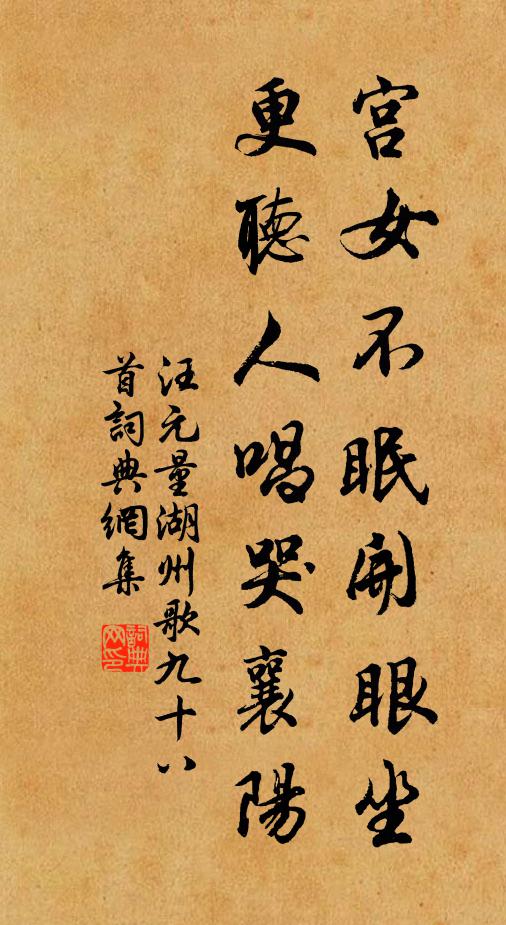 宫女不眠開眼坐
更聽人唱哭襄陽
汪元量湖州歌九十八
首詞典網集
詞典
网印